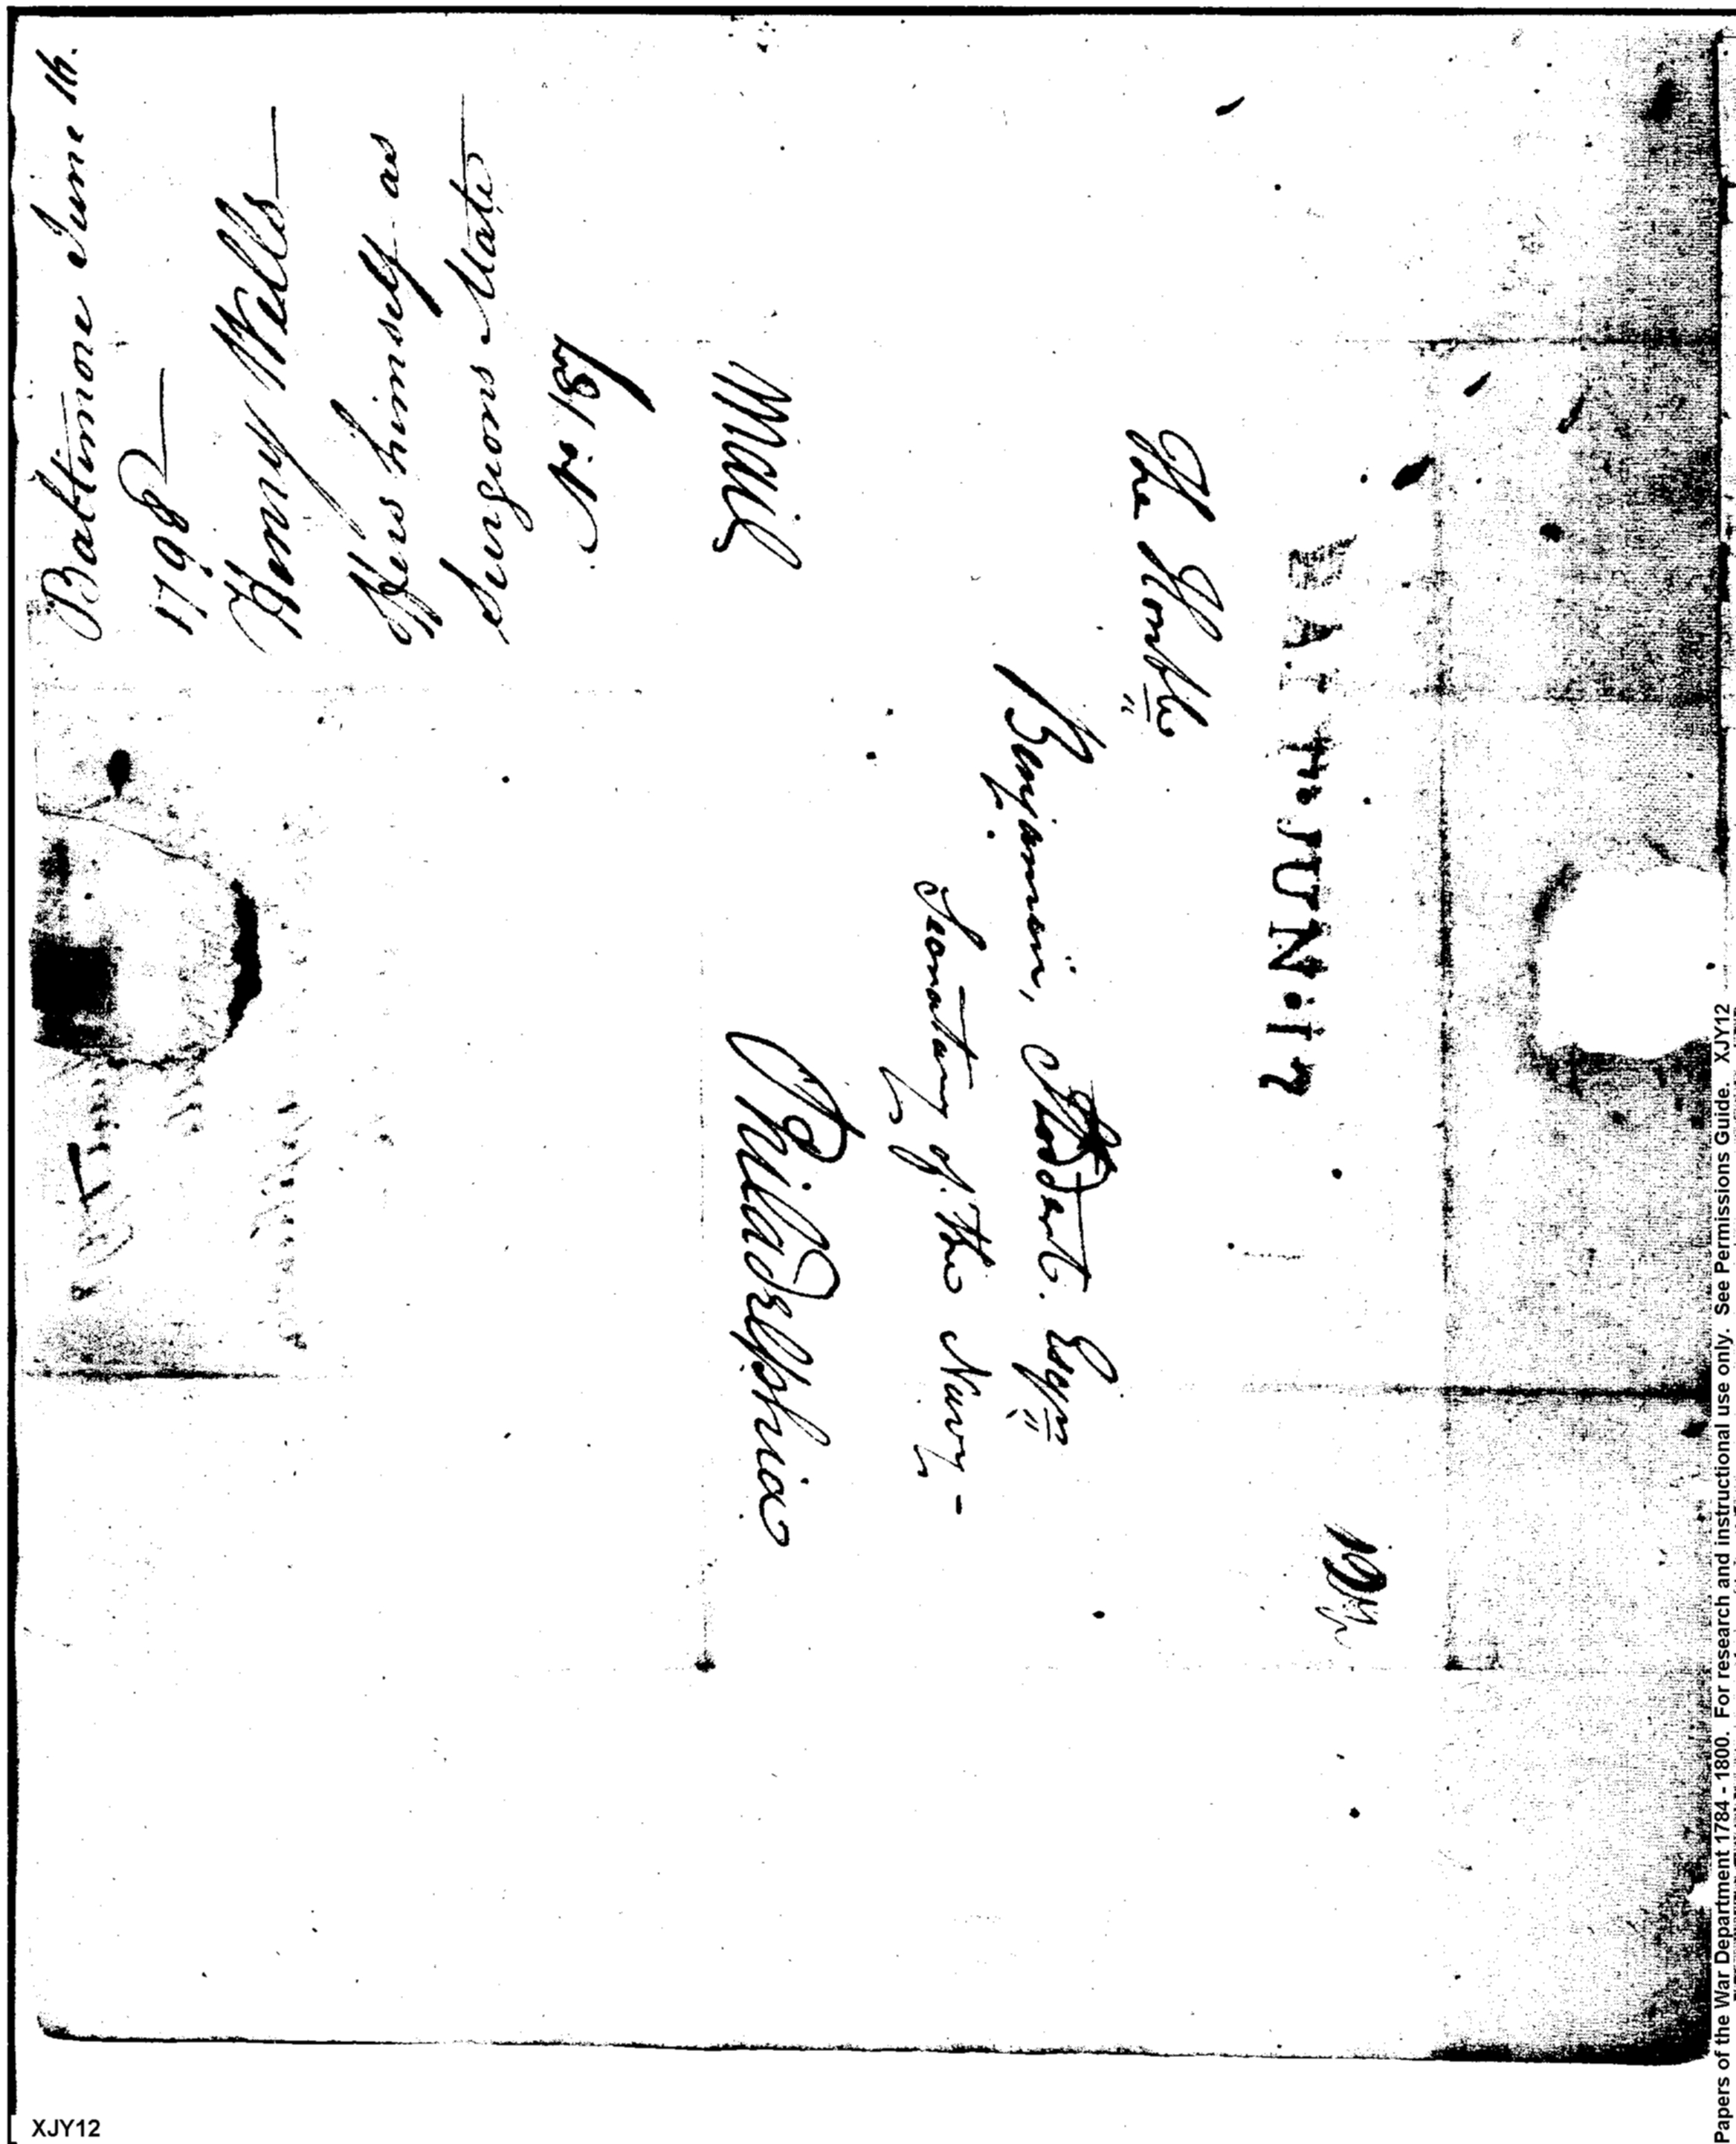 Baltimore June 16.
1798
Henry Wells
offers himself as
Surgeons Mate
The Honble
Benjamin, Stoddert. Esqr
Secretary of the Navy -
Philadelphia
Mail
BALT. JUN. 17
XJY12
Papers of the War Department 1784 - 1800. For research and instructional use only. See Permissions Guide. XJY12